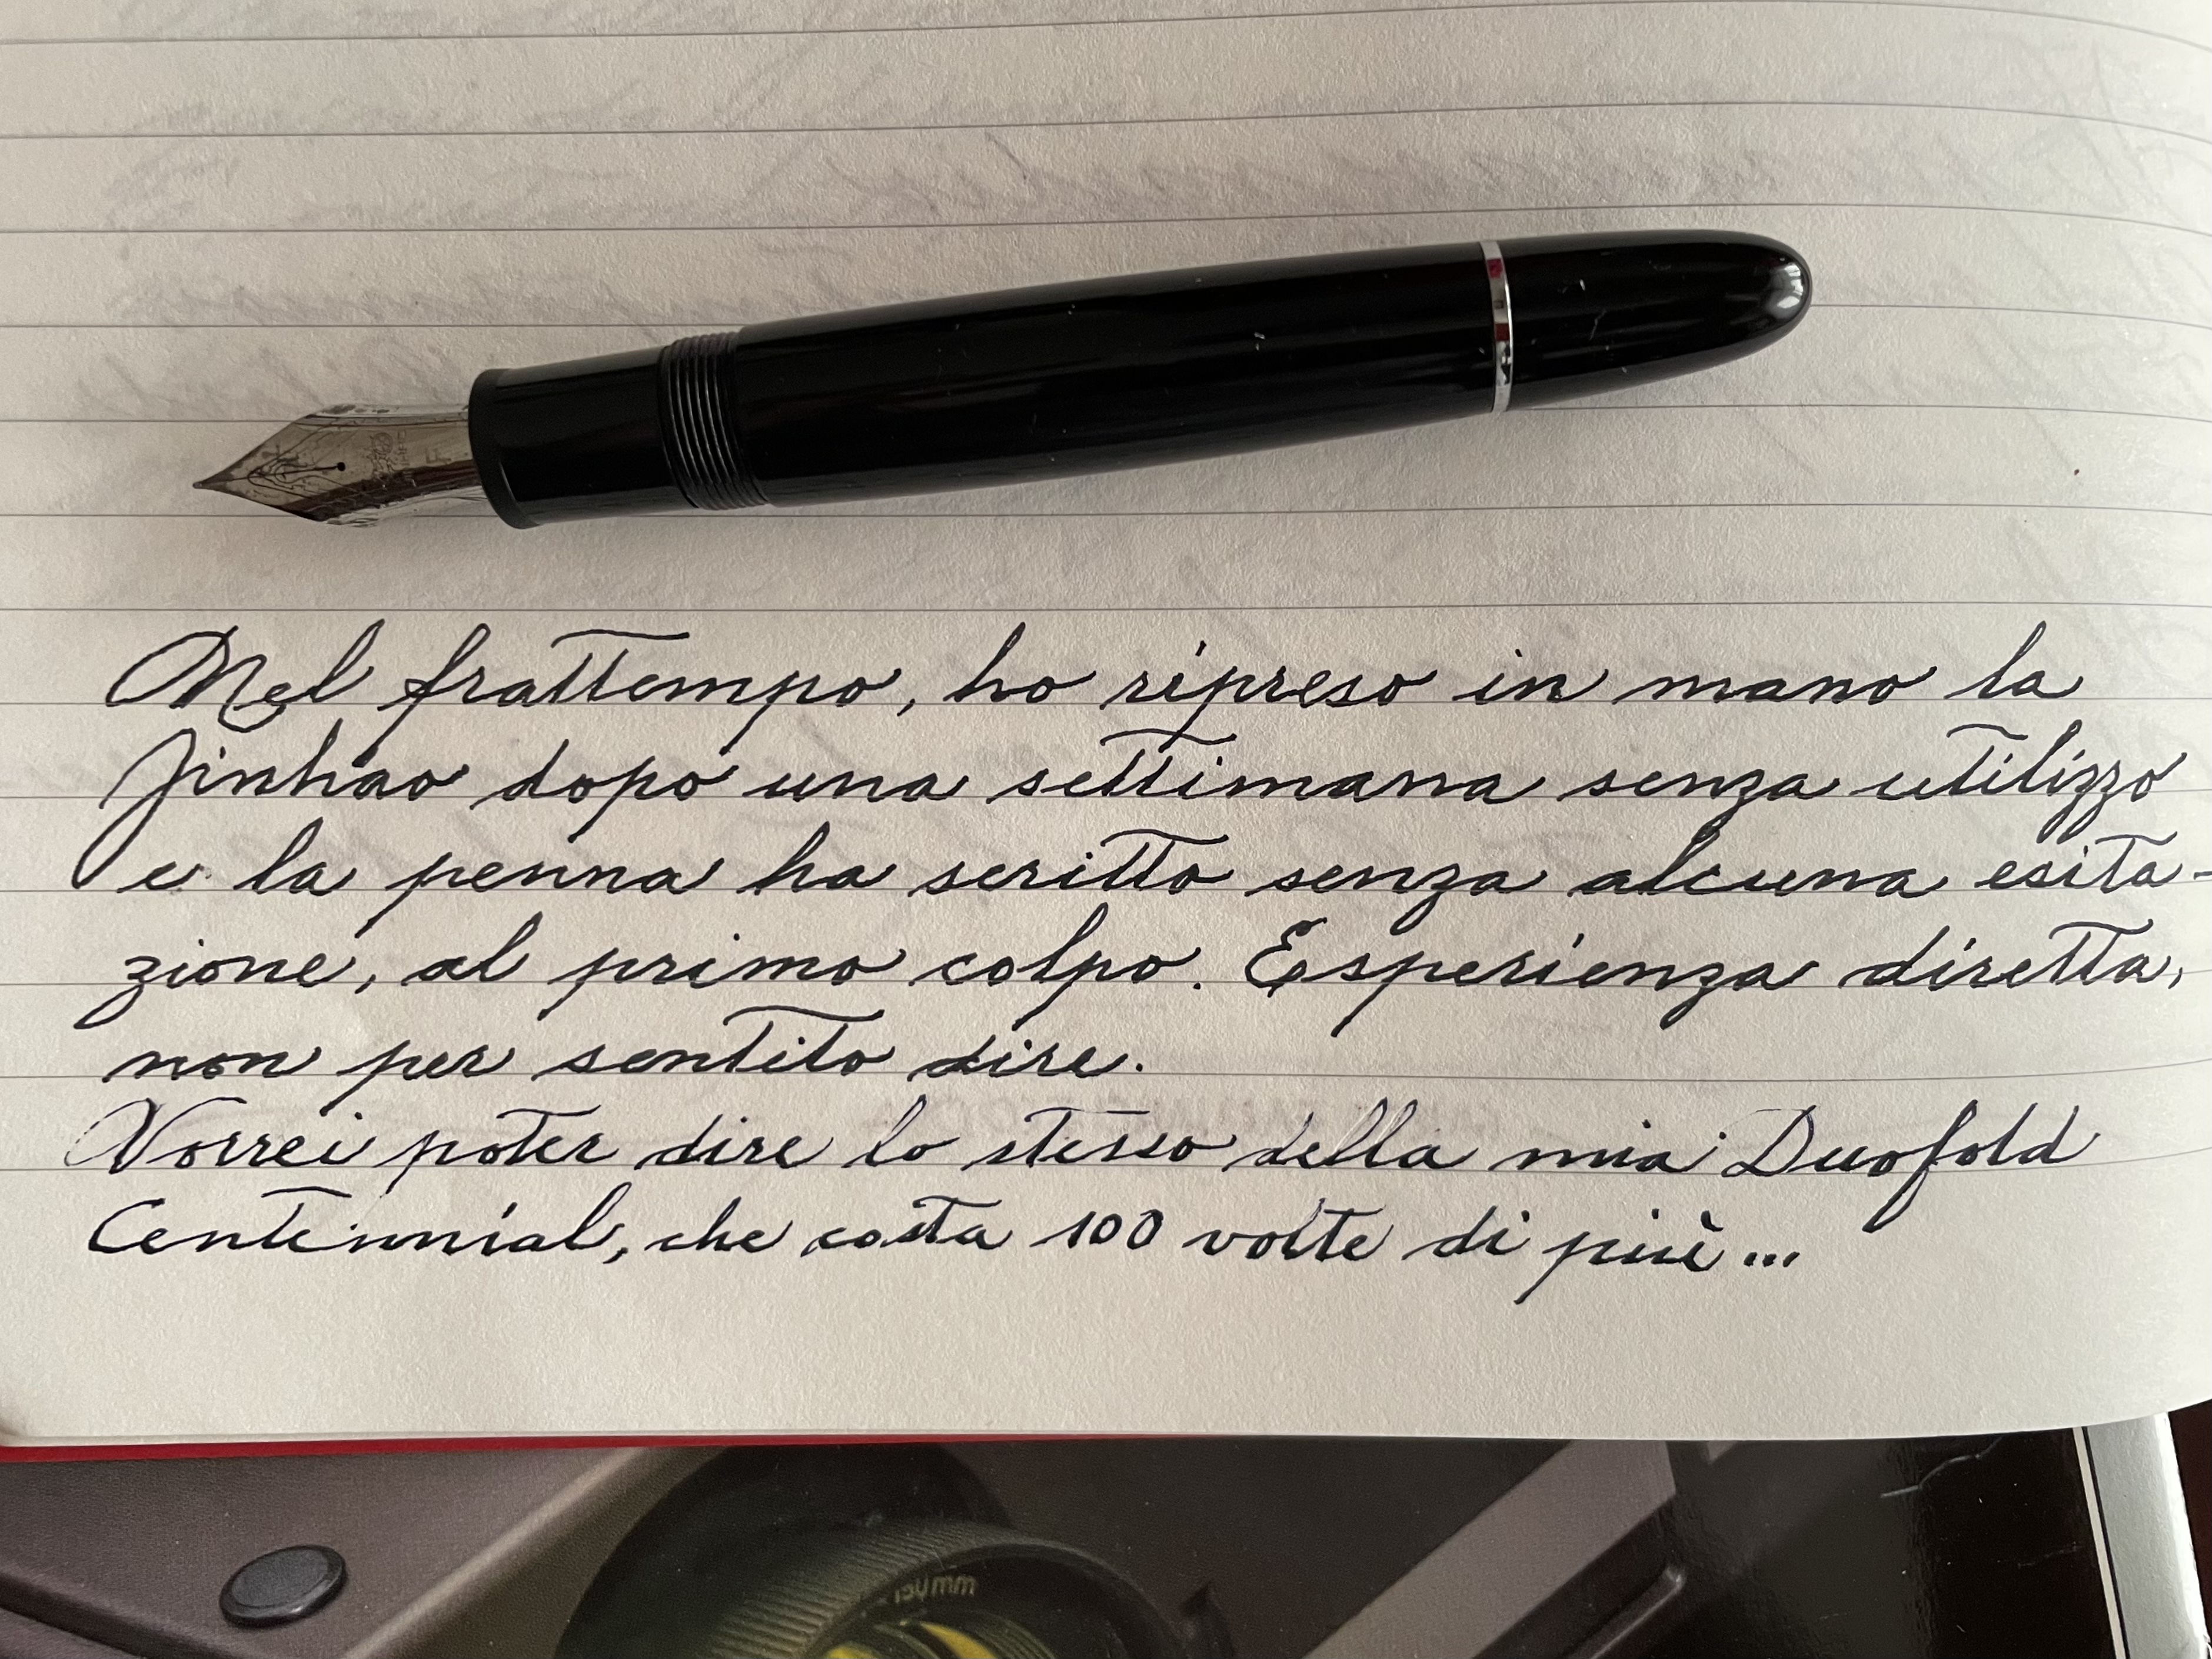 Nel frattempo, ho ripreso in mano la
Jinhao dopo una settimana senza utilizzo
e la penna ha scritto senza alcuna esita-
zione, al primo colpo. Esperienza diretta,
non per sentito dire.
Vorrei poter dire lo stesso della mia Duofold
Centennial, che costa 100 volte di più...
150mm